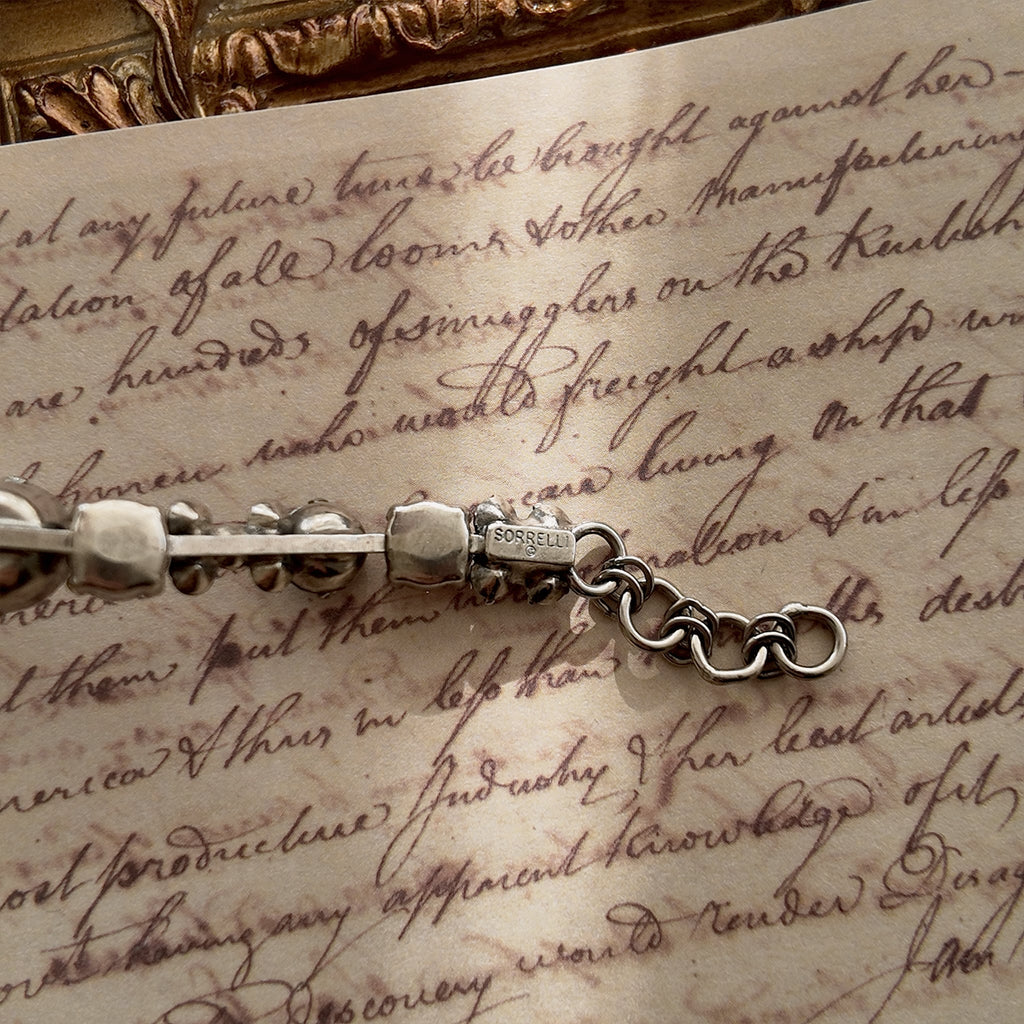 at any future time be brought against her -
of all looms & other manufacturing
are hundreds of smugglers on the Kentish
who would freight a ship
are living on that
SORRELLI
©
& in less
them put them
& thus in less than the
most productive Industry & her best artists
having any apparent knowledge of it,
Discovery would render
am